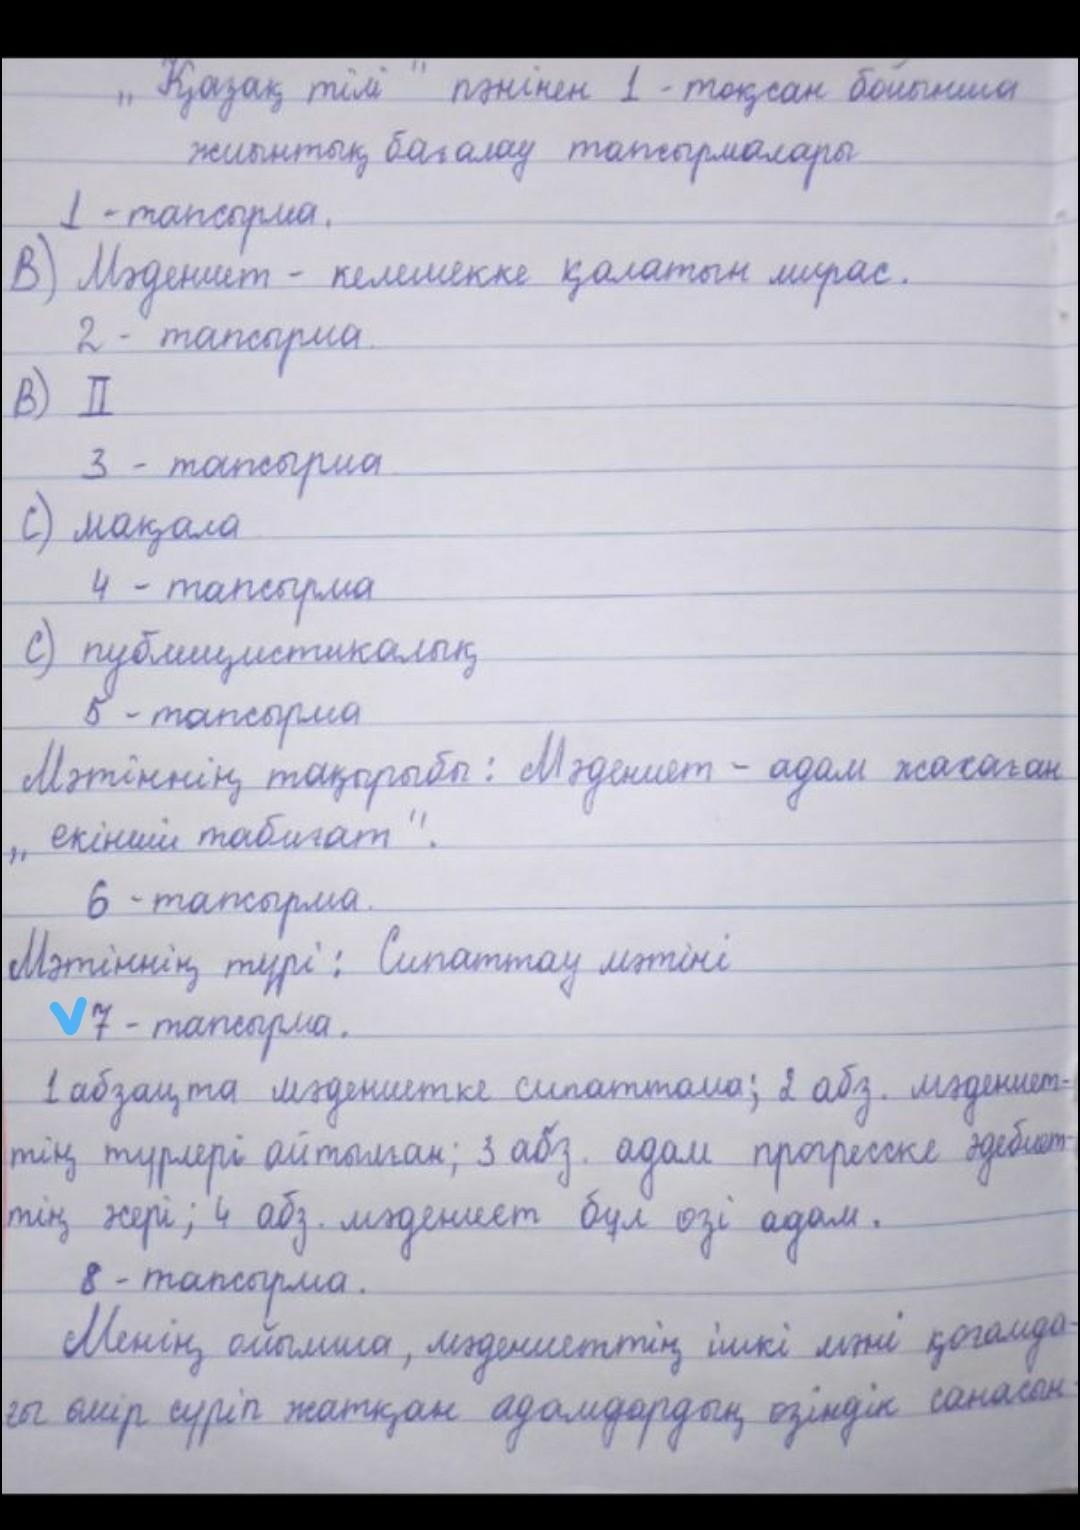 „Қазақ тілі" пәнінен 1 - тоқсан бойынша
жиынтық бағалау тапсырмалары
1 - тапсырма.
В) Мәдениет - келешекке қалатын мирас.
2 - тапсырма.
В) II
3 - тапсырма
С) мақала
4 - тапсырма
С) публицистикалық
5 - тапсырма
Мәтіннің тақырыбы: Мәдениет - адам жасаған
„екінші табиғат".
6 - тапсырма.
Мәтіннің түрі: Сипаттау мәтіні
7 - тапсырма.
1 абзацта мәдениетке сипаттама; 2 абз. мәдениет-
тің түрлері айтылған; 3 абз. адам прогресске әдебиет-
тің жері; 4 абз. мәдениет бұл өзі адам.
8 - тапсырма.
Менің ойымша, мәдениеттің ішкі мәні қоғамда-
ғы өмір сүріп жатқан адамдардың өзіндік санасын-